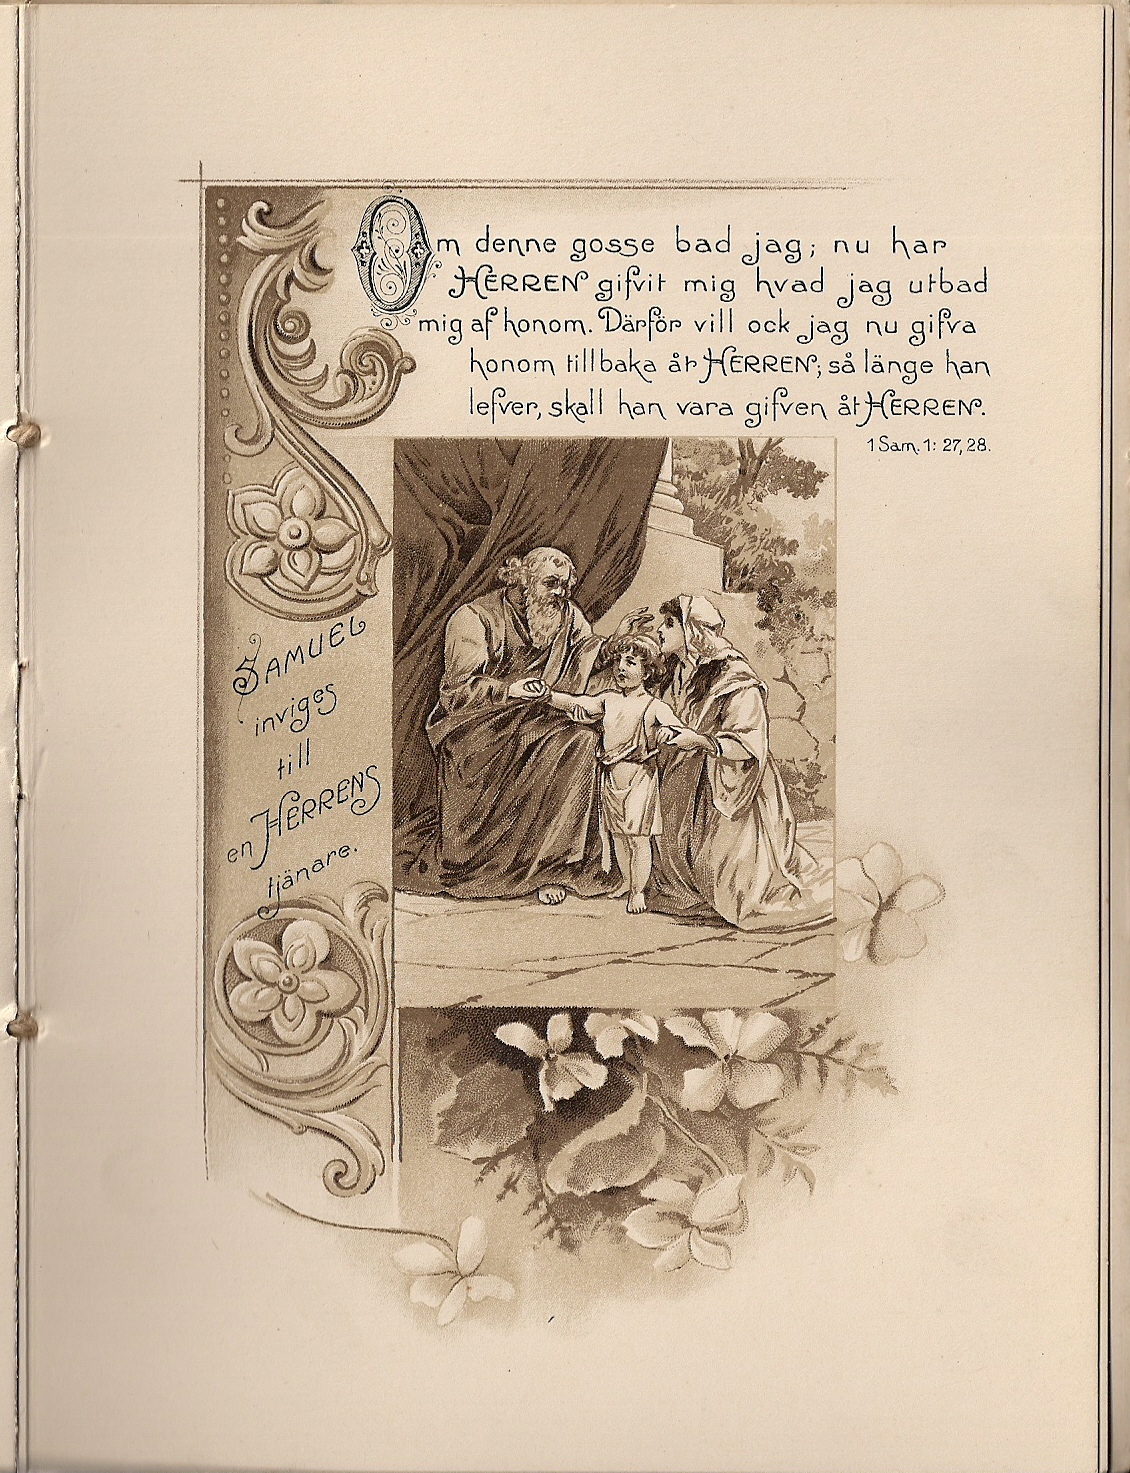 Om denne gosse bad jag; nu har
HERREN gifvit mig hvad jag utbad
mig af honom. Därför vill ock jag nu gifva
honom tillbaka åt HERREN; så länge han
lefver, skall han vara gifven åt HERREN.
1 Sam. 1: 27, 28.
SAMUEL
inviges
till
en HERRENS
tjänare.